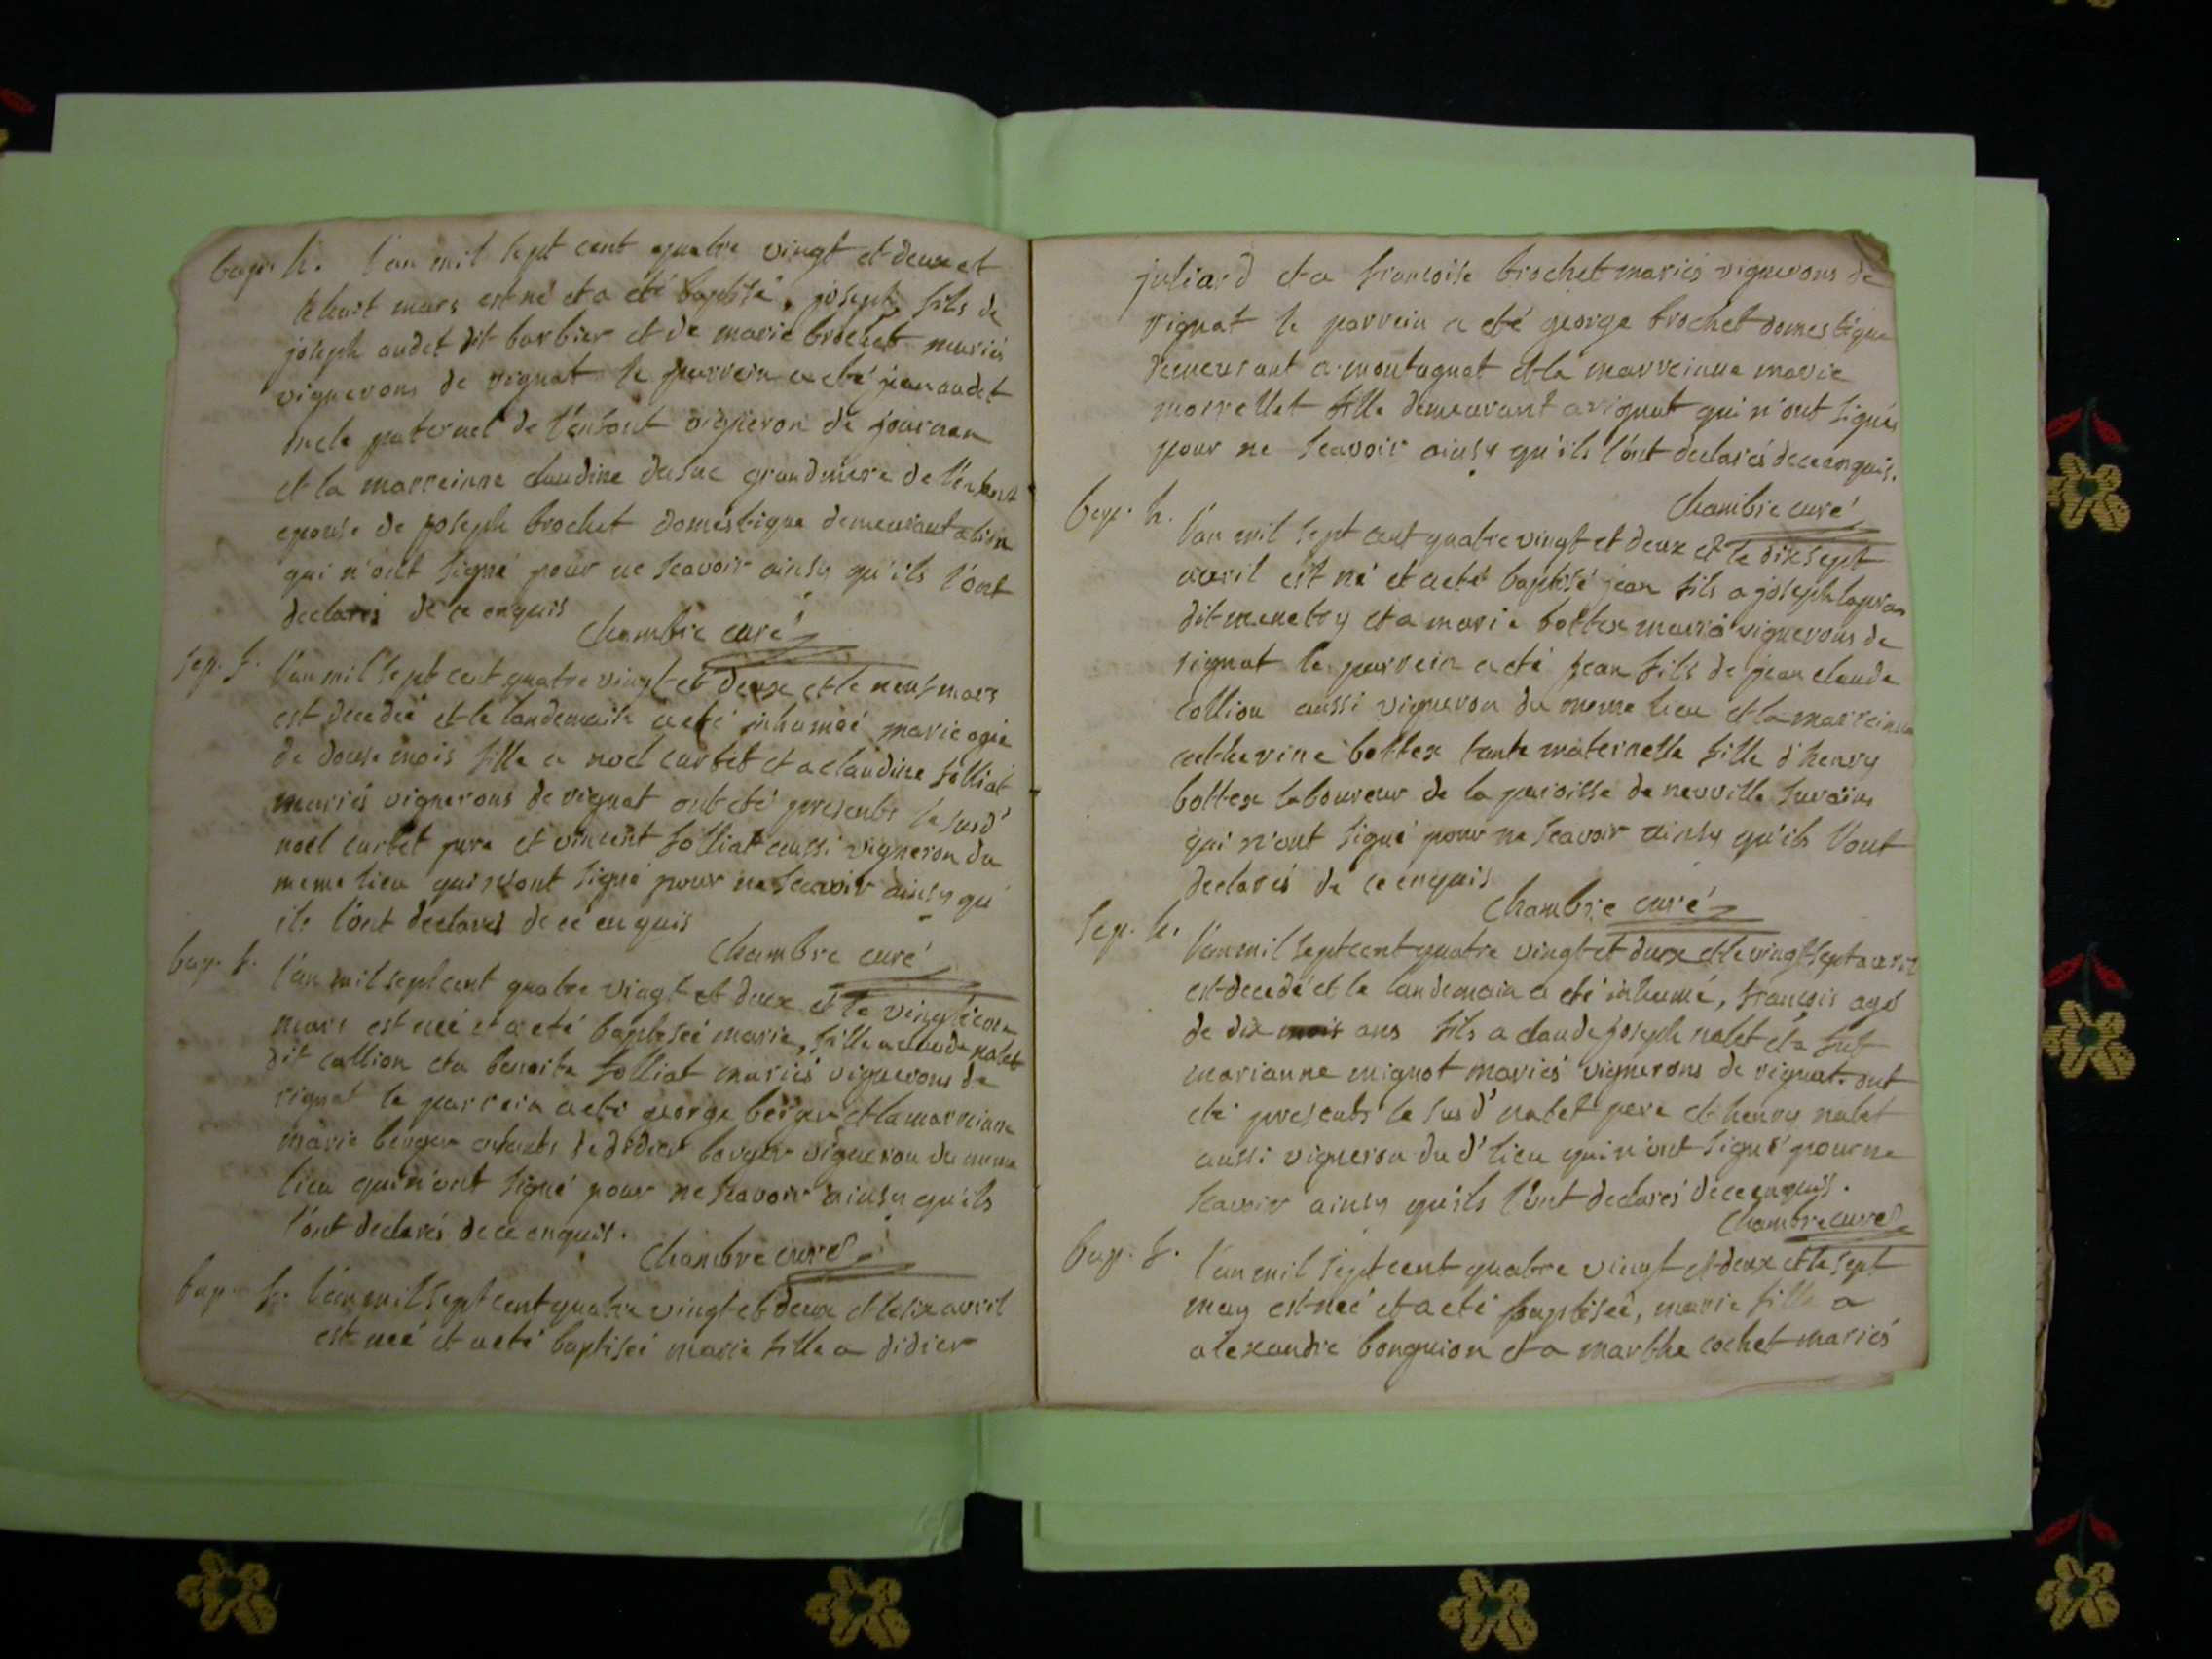 bap. h. l'an mil sept cent quatre vingt et deux et
le huit mars est né et a été baptisé, joseph fils de
joseph audet dit barbier et de marie brochet mariés
vignerons de rignat le parrein a eté jean audet
oncle paternel de l'enfant vigneron de journan
et la marreinne claudine dusuc grandmere de l'enfant
epouse de joseph brochet domestique demeurant
qui n'ont signé pour ne scavoir ainsy qu'ils l'ont
declarés de ce enquis
Chambre curé
sep. f. l'an mil sept cent quatre vingt et deux et le neuf mars
est decedeé et le landemain a eté inhumeé marie ageé
de douse mois fille a noel curtet et a claudine folliat
mariés vignerons de rignat ont eté presents le susd'
noel curtet pere et vincent folliat aussi vigneron du
meme lieu qui n'ont signé pour ne scavoir ainsy qu'
ils l'ont declarés de ce enquis
Chambre curé
bap. f. l'an mil sept cent quatre vingt et deux et le vingt
mars est neé et a eté baptiseé marie, fille a claude nalet
dit callion et a benoite folliat mariés vignerons de
rignat le parrein a eté george berger et la marreinne
marie berger enfants de didier berger vigneron du meme
lieu qui n'ont signé pour ne scavoir ainsy qu'ils
l'ont declarés de ce enquis.
Chambre curé
bap. f. l'an mil sept cent quatre vingt et deux et le six avril
est neé et a eté baptiseé marie fille a didier
juliard et a francoise brochet mariés vignerons de
rignat le parrein a eté george brochet domestique
demeurant a montagnat et la marreinne marie
morrellet fille demeurant a rignat qui n'ont signés
pour ne scavoir ainsy qu'ils l'ont declarés de ce enquis.
Chambre curé
bap. h.
l'an mil sept cent quatre vingt et deux et le dix sept
avril est né et a eté baptisé jean fils a joseph
dit menetry et a marie bottex mariés vignerons de
rignat le parrein a eté jean fils de jean claude
collion aussi vigneron du meme lieu et la marreinne
catherine bottex tante maternelle fille d'henry
bottex laboureur de la paroisse de neuville surains
qui n'ont signé pour ne scavoir ainsy qu'ils l'ont
declarés de ce enquis
Chambre curé
sep. h.
l'an mil sept cent quatre vingt et deux et le vingt sept avril
est decedé et le landemain a eté inhumé, francois agé
de dix mois ans fils a claude joseph nalet et a fut
marianne mignot mariés vignerons de rignat. ont
eté presents le susd' nalet pere et henry nalet
aussi vigneron dud' lieu qui n'ont signé pour ne
scavoir ainsy qu'ils l'ont declarés de ce enquis.
Chambre curé
bap. f.
l'an mil sept cent quatre vingt et deux et le sept
may est neé et a eté baptiseé, marie fille a
alexandre bonguion et a marthe cochet mariés